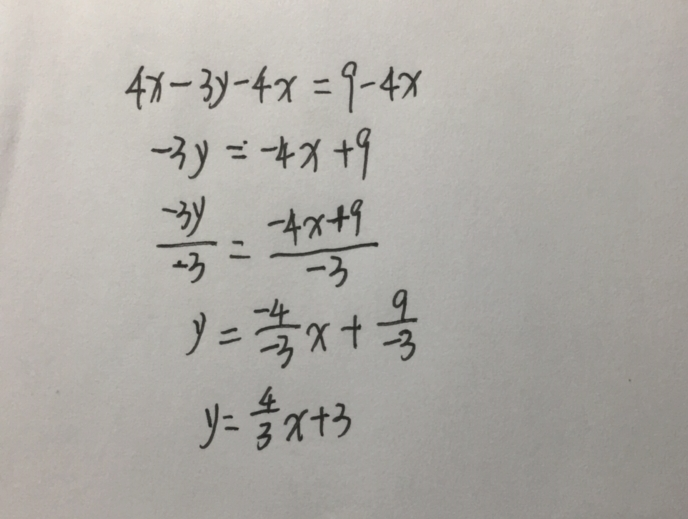 4x-3y-4x=9-4x
-3y=-4x+9
-3y/-3=-4x+9/-3
y=-4/-3x+9/-3
y=4/3x+3